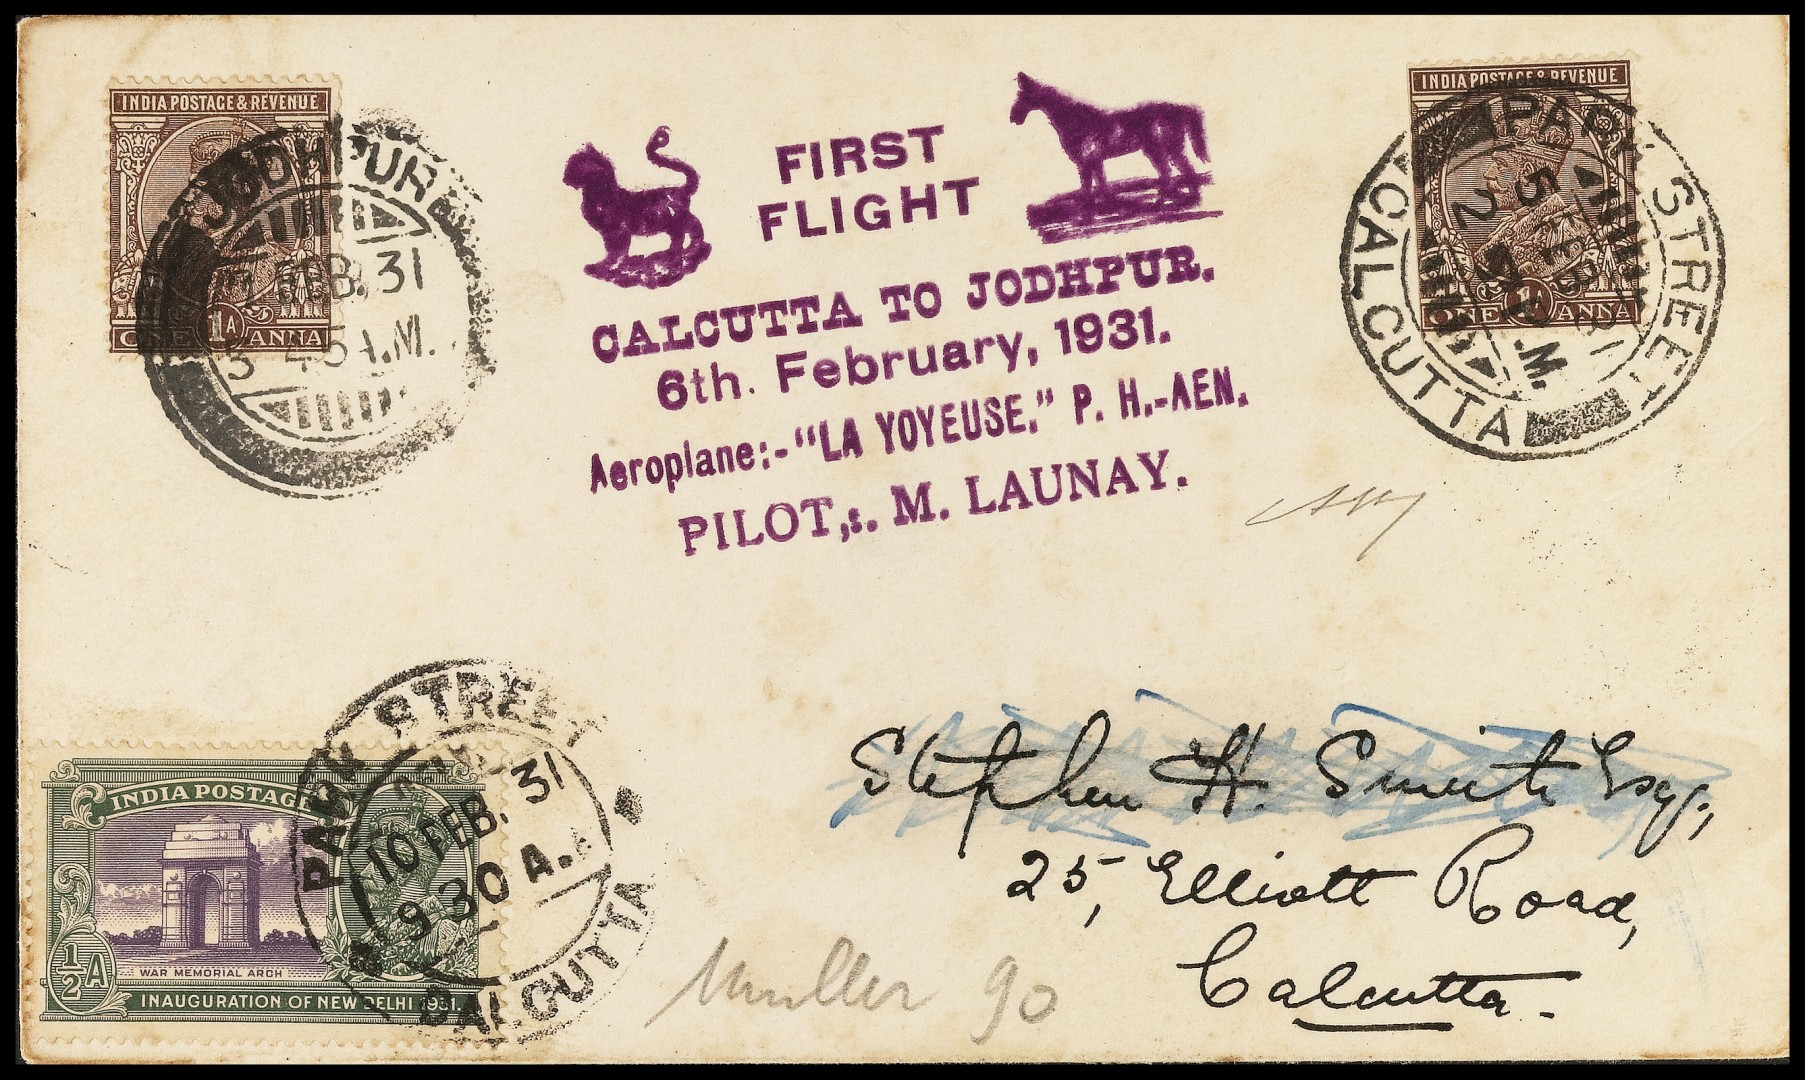 INDIA POSTAGE & REVENUE
ONE 1A ANNA
JODHPUR
FEB. 31
A.M.
FIRST
FLIGHT
CALCUTTA TO JODHPUR.
6th. February, 1931.
Aeroplane:- "LA YOYEUSE," P. H.-AEN.
PILOT,:. M. LAUNAY.
INDIA POSTAGE & REVENUE
ONE ANNA
PARK STREET
5 FEB. 31
CALCUTTA
INDIA POSTAGE
WAR MEMORIAL ARCH
½ A
INAUGURATION OF NEW DELHI 1931.
PARK STREET
10 FEB. 31
9 30 A.
CALCUTTA
Stephen H. Smith Esq.,
25, Elliott Road,
Calcutta.
Muller 90